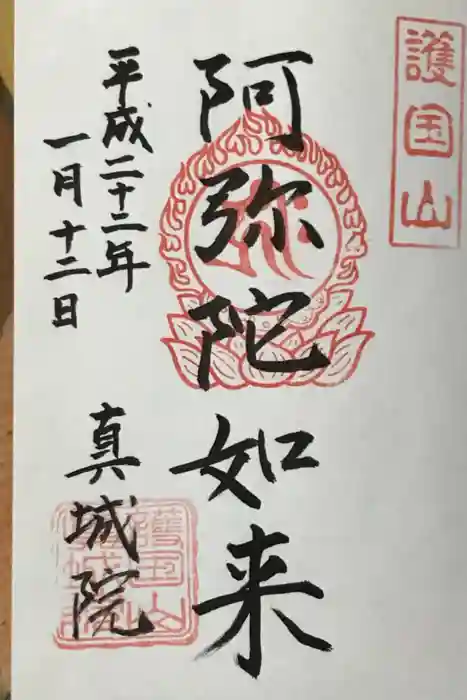 護国山
阿弥陀如来
平成二十二年
一月十二日
真城院